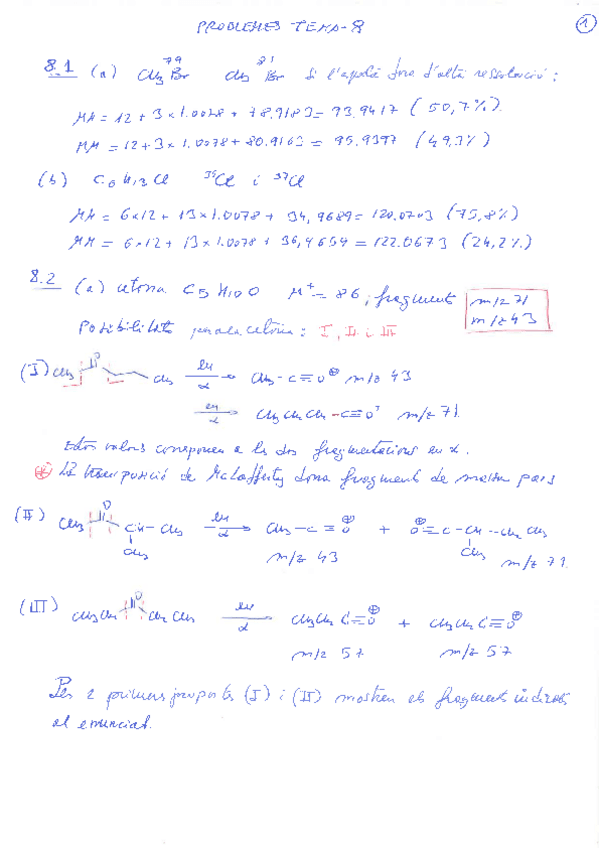 PROBLEMES TEMA-8
1
8.1 (a) CH3 79Br CH3 81Br Si l'aparell fora d'alta resolució:
MM = 12 + 3 x 1.0078 + 78.9183 = 93.9417 (50,7%)
MM = 12 + 3 x 1.0078 + 80.9163 = 95.9397 (49,3%)
(b) C6H13Cl 35Cl i 37Cl
MM = 6x12 + 13x1.0078 + 34,9689 = 120.0703 (75,8%)
MM = 6x12 + 13x1.0078 + 36,9659 = 122.0673 (24,2%)
8.2 (a) cetona C5H10O M+ = 86, fragments m/z 71
m/z 43
Possibilitats per a la cetona: I, II i III
(I) CH3 O CH3 α CH3-C≡O⊕ m/z 43
α CH3CH2CH2-C≡O+ m/z 71
Estos valors corresponen a les dos fragmentacions en α.
* La transposició de McLafferty dona fragments de massa parell
(II) CH3 O CH-CH3 α CH3-C≡O⊕ + ⊕O≡C-CH-CH3
CH3 m/z 43 CH3 m/z 71
(III) CH3CH2 O CH2CH3 α CH3CH2C≡O⊕ + CH3CH2C≡O⊕
m/z 57 m/z 57
Les 2 primers propostes (I) i (II) mostren els fragments indicats
al enunciat.